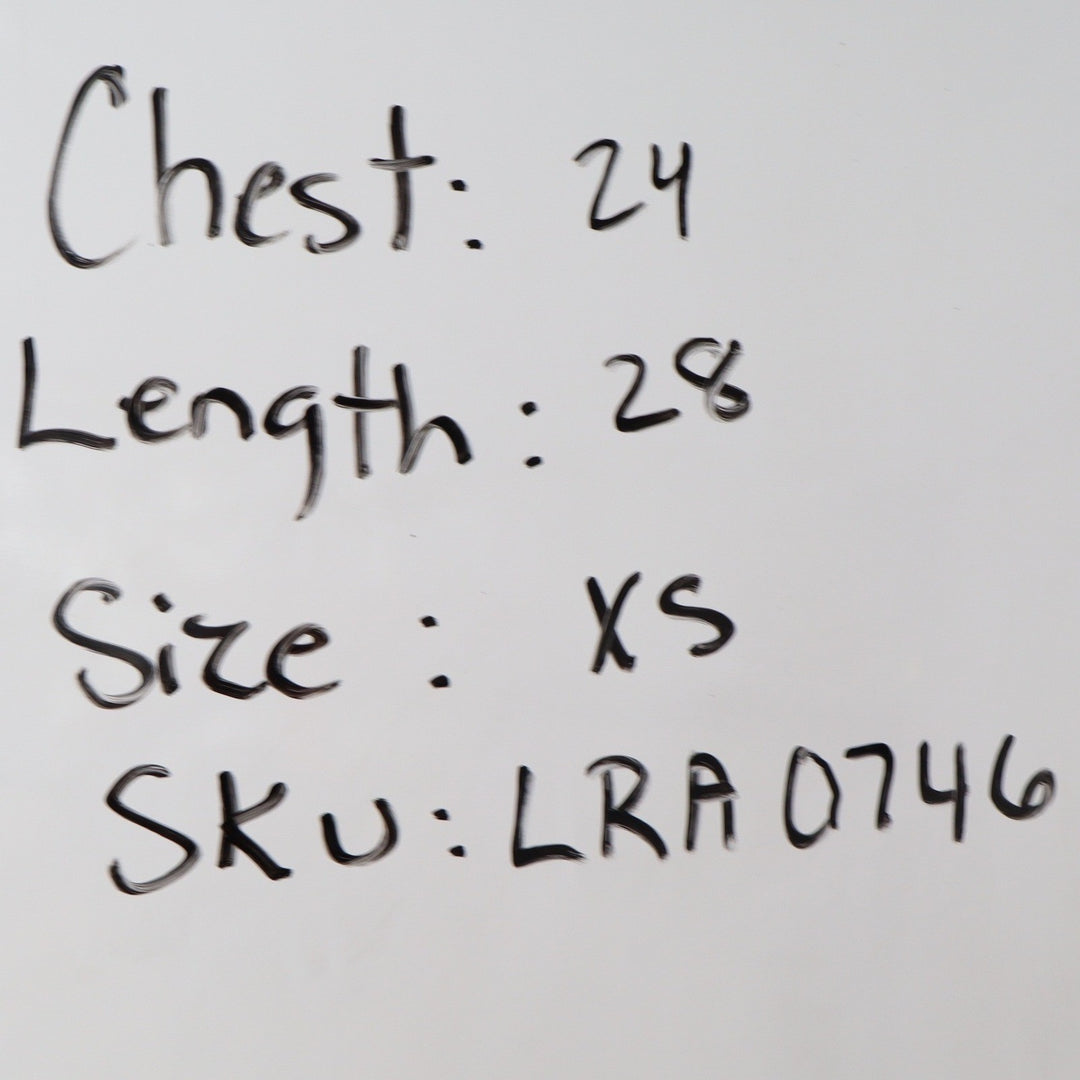 Chest: 24
Length: 28
Size: XS
SKU: LRA0746